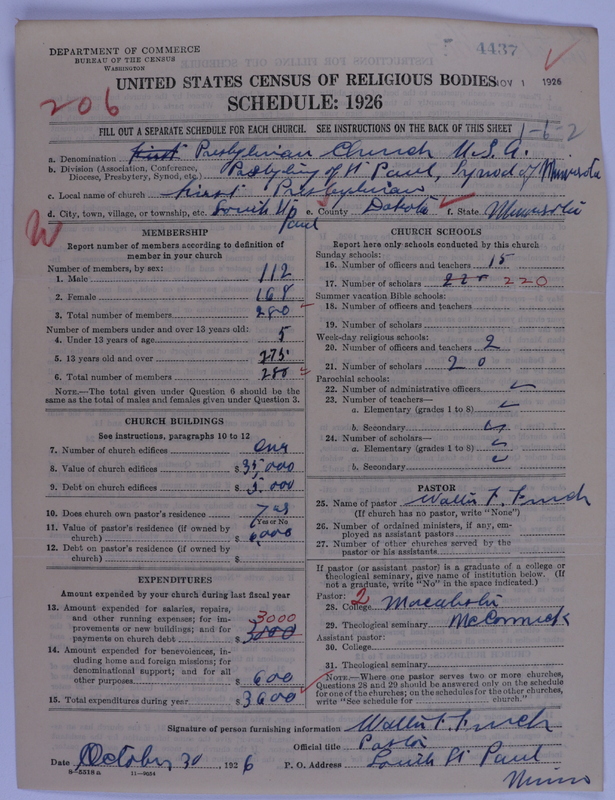 4437
DEPARTMENT OF COMMERCE
BUREAU OF THE CENSUS
WASHINGTON
UNITED STATES CENSUS OF RELIGIOUS BODIES
NOV 1 1926
206
SCHEDULE: 1926
FILL OUT A SEPARATE SCHEDULE FOR EACH CHURCH. SEE INSTRUCTIONS ON THE BACK OF THIS SHEET
1-6-2
a. Denomination First Presbyterian Church U.S.A.
b. Division (Association, Conference, Diocese, Presbytery, Synod, etc.) Presbytery of St Paul, Synod of Minnesota
c. Local name of church First Presbyterian
d. City, town, village, or township, etc. South St Paul e. County Dakota f. State Minnesota
W
MEMBERSHIP
Report number of members according to definition of member in your church
Number of members, by sex:
1. Male 112
2. Female 168
3. Total number of members 280
Number of members under and over 13 years old:
4. Under 13 years of age 5
5. 13 years old and over 275
6. Total number of members 280
NOTE.—The total given under Question 6 should be the same as the total of males and females given under Question 3.
CHURCH BUILDINGS
See instructions, paragraphs 10 to 12
7. Number of church edifices One
8. Value of church edifices $35,000
9. Debt on church edifices $5,000
10. Does church own pastor's residence Yes
(Yes or No)
11. Value of pastor's residence (if owned by church) $6,000
12. Debt on pastor's residence (if owned by church) $
EXPENDITURES
Amount expended by your church during last fiscal year
13. Amount expended for salaries, repairs, and other running expenses; for improvements or new buildings; and for payments on church debt $3000 3000
14. Amount expended for benevolences, including home and foreign missions; for denominational support; and for all other purposes $600
15. Total expenditures during year $3600
CHURCH SCHOOLS
Report here only schools conducted by this church
Sunday schools:
16. Number of officers and teachers 15
17. Number of scholars 220 220
Summer vacation Bible schools:
18. Number of officers and teachers
19. Number of scholars
Week-day religious schools:
20. Number of officers and teachers 2
21. Number of scholars 20
Parochial schools:
22. Number of administrative officers
23. Number of teachers—
a. Elementary (grades 1 to 8)
b. Secondary
24. Number of scholars—
a. Elementary (grades 1 to 8)
b. Secondary
PASTOR
25. Name of pastor Wallis F. Finch
(If church has no pastor, write "None")
26. Number of ordained ministers, if any, employed as assistant pastors
27. Number of other churches served by the pastor or his assistants
If pastor (or assistant pastor) is a graduate of a college or theological seminary, give name of institution below. (If not a graduate, write "No" in the space indicated.)
Pastor: 2
28. College Macalester
29. Theological seminary McCormick
Assistant pastor:
30. College
31. Theological seminary
NOTE.—Where one pastor serves two or more churches, Questions 28 and 29 should be answered only on the schedule for one of the churches; on the schedules for the other churches, write "See schedule for church."
Signature of person furnishing information Wallis F. Finch
Official title Pastor
Date October 30, 1926 P. O. Address South St Paul
Minn
8-5318a 11-9054